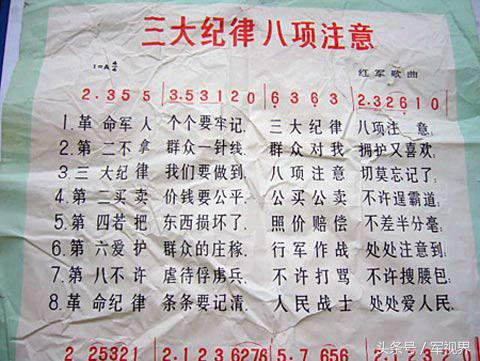 三大纪律八项注意
1=A 4/4
红军歌曲
2·3 5 5 | 3·5 3 1 2 0 | 6 3 6 3 | 2·3 2 6 1 0 |
1.革命军人 个个要牢记, 三大纪律 八项注意;
2.第二不拿 群众一针线, 群众对我 拥护又喜欢;
3.三大纪律 我们要做到, 八项注意 切莫忘记了;
4.第二买卖 价钱要公平, 公买公卖 不许逞霸道;
5.第四若把 东西损坏了, 照价赔偿 不差半分毫;
6.第六爱护 群众的庄稼, 行军作战 处处注意到;
7.第八不许 虐待俘虏兵, 不许打骂 不许搜腰包;
8.革命纪律 条条要记清, 人民战士 处处爱人民;
头条号/军视界